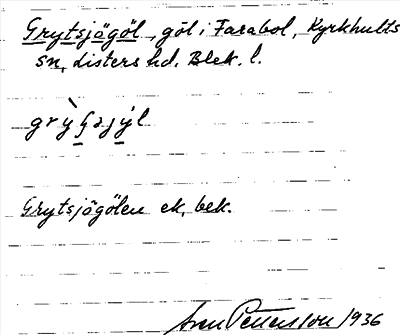 Grytsjögöl, göl i Farabol, Kyrkhults
sn, Listers hd. Blek. l.
Grytsjögölen ek, bek.
Sven Pettersson 1936